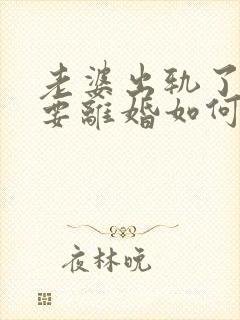 老婆出轨了
要離婚如何
夜林晚